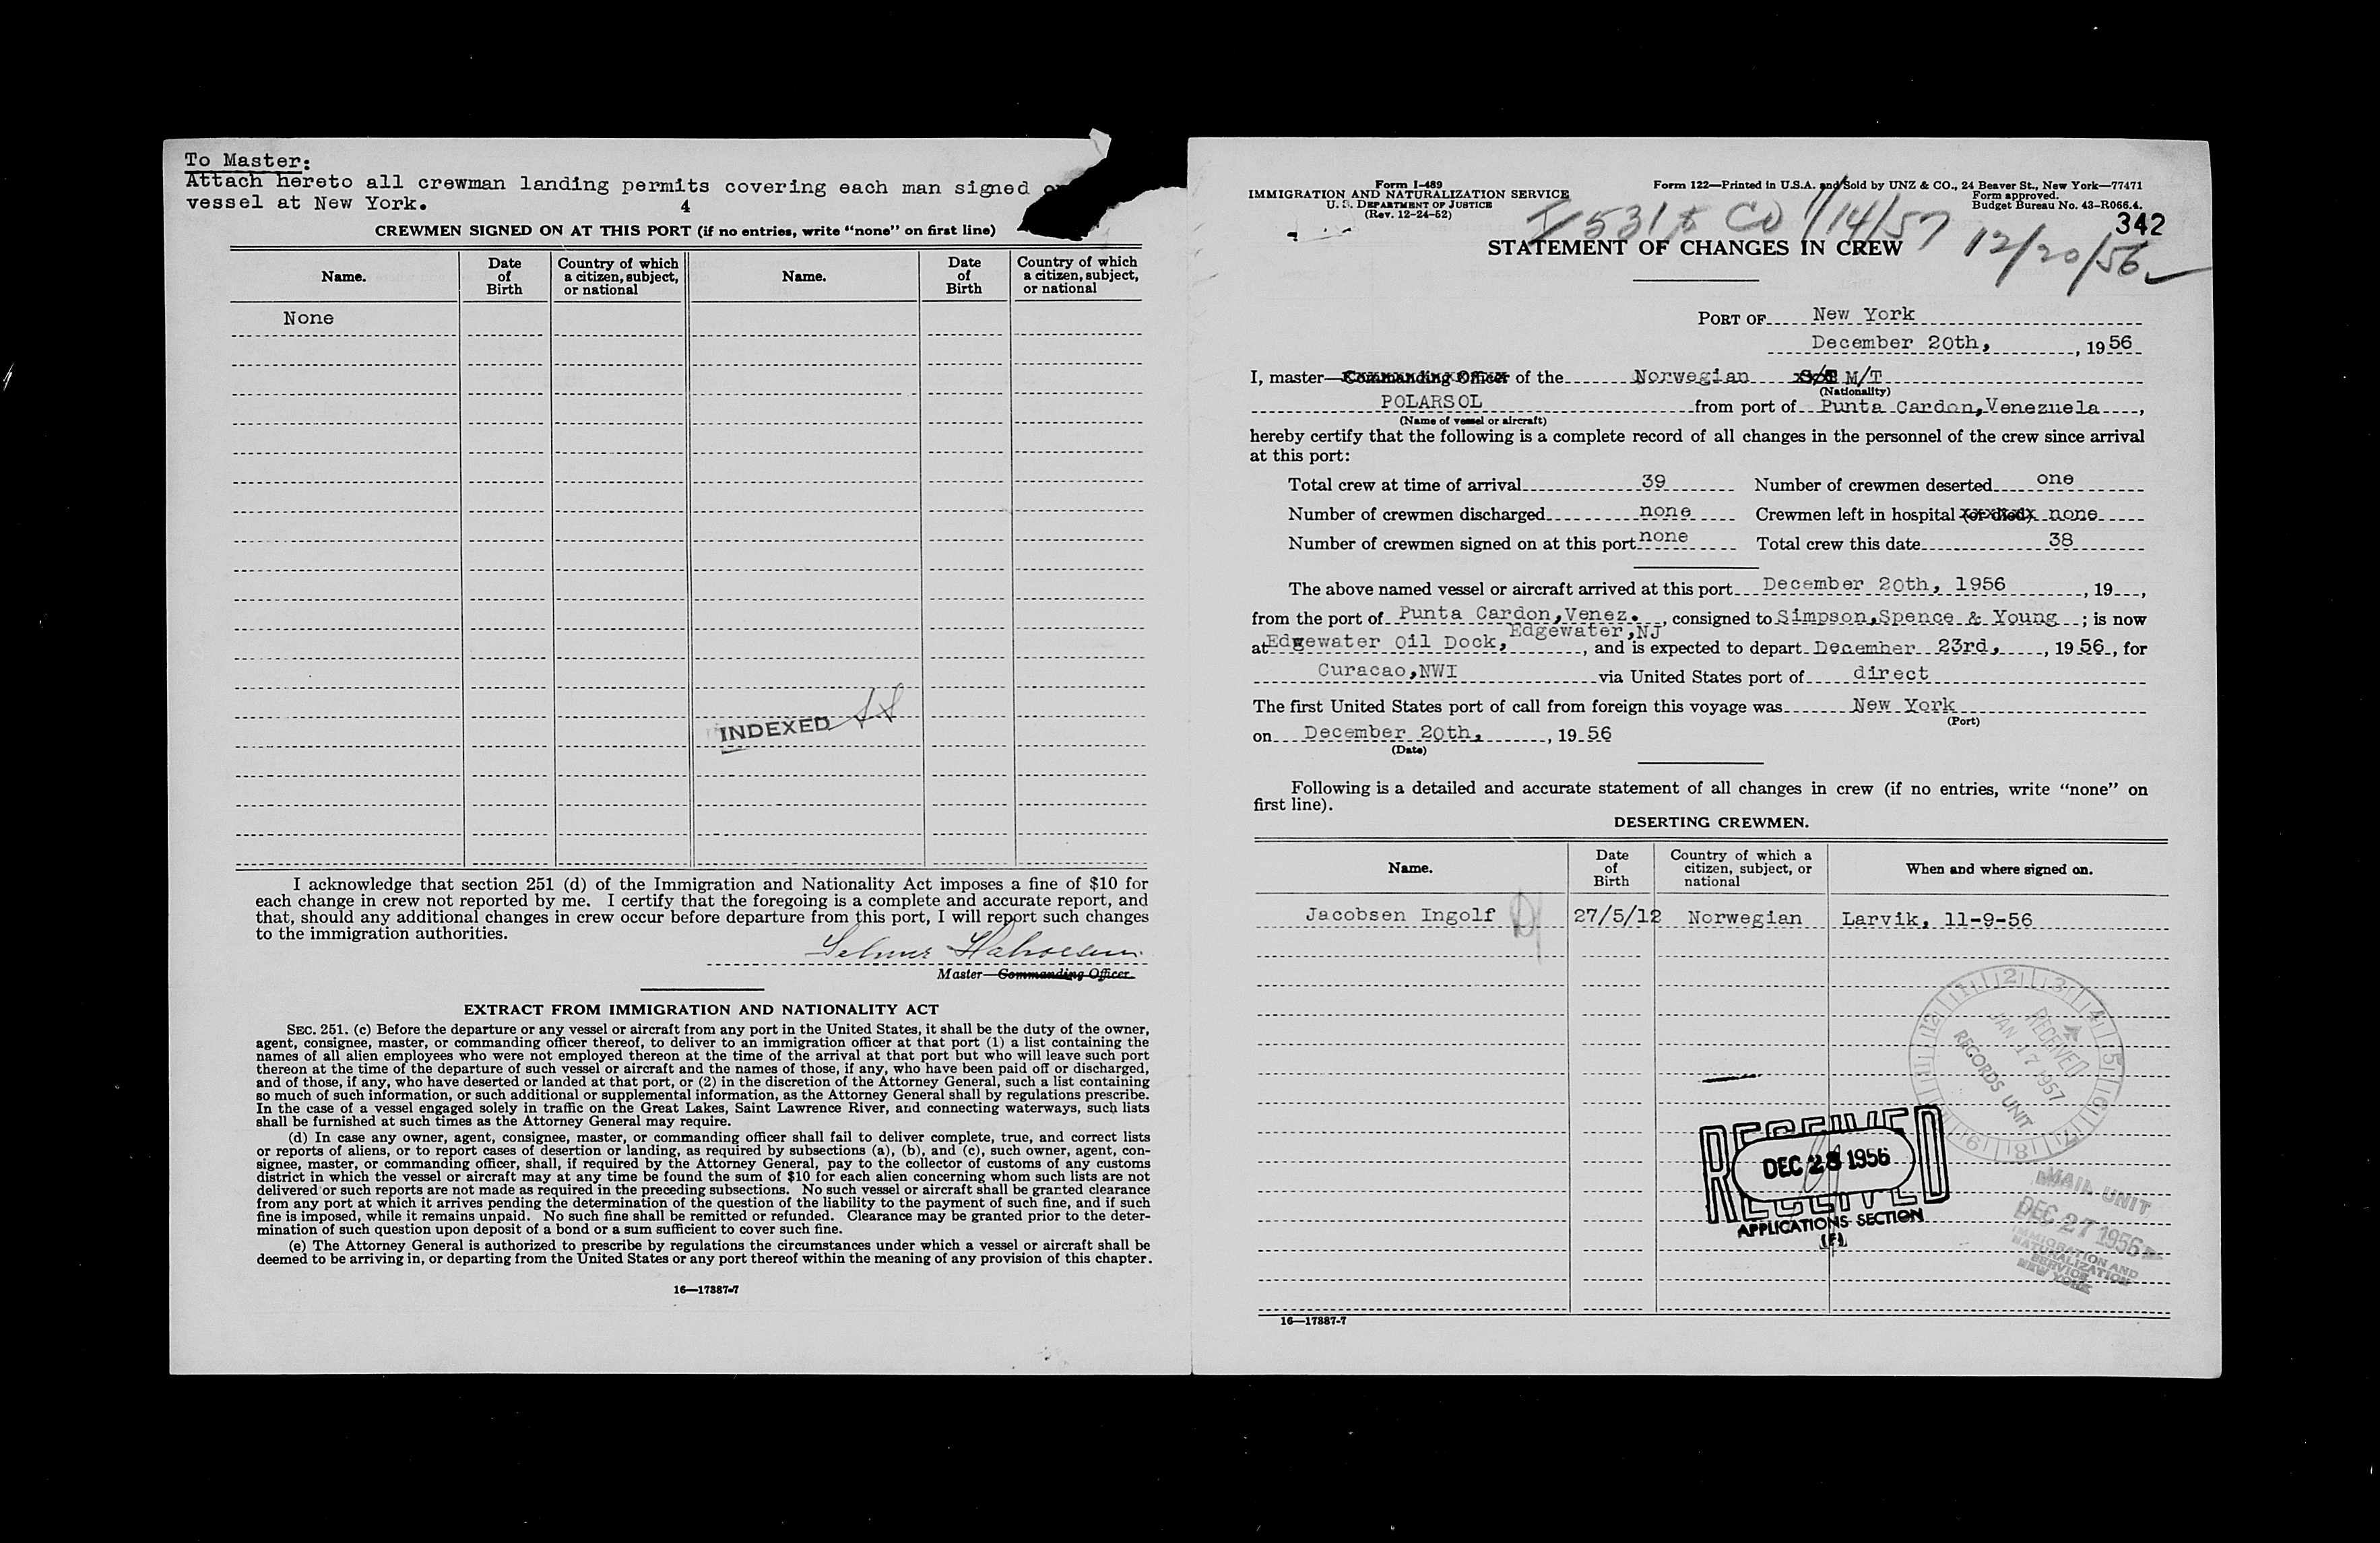 To Master:
Attach hereto all crewman landing permits covering each man signed
vessel at New York.
4
CREWMEN SIGNED ON AT THIS PORT (if no entries, write “none” on first line)
Name. Date of Birth Country of which a citizen, subject, or national Name. Date of Birth Country of which a citizen, subject, or national
None
INDEXED
I acknowledge that section 251 (d) of the Immigration and Nationality Act imposes a fine of $10 for
each change in crew not reported by me. I certify that the foregoing is a complete and accurate report, and
that, should any additional changes in crew occur before departure from this port, I will report such changes
to the immigration authorities.
Master—Commanding Officer.
EXTRACT FROM IMMIGRATION AND NATIONALITY ACT
SEC. 251. (c) Before the departure or any vessel or aircraft from any port in the United States, it shall be the duty of the owner,
agent, consignee, master, or commanding officer thereof, to deliver to an immigration officer at that port (1) a list containing the
names of all alien employees who were not employed thereon at the time of the arrival at that port but who will leave such port
thereon at the time of the departure of such vessel or aircraft and the names of those, if any, who have been paid off or discharged,
and of those, if any, who have deserted or landed at that port, or (2) in the discretion of the Attorney General, such a list containing
so much of such information, or such additional or supplemental information, as the Attorney General shall by regulations prescribe.
In the case of a vessel engaged solely in traffic on the Great Lakes, Saint Lawrence River, and connecting waterways, such lists
shall be furnished at such times as the Attorney General may require.
(d) In case any owner, agent, consignee, master, or commanding officer shall fail to deliver complete, true, and correct lists
or reports of aliens, or to report cases of desertion or landing, as required by subsections (a), (b), and (c), such owner, agent, con-
signee, master, or commanding officer, shall, if required by the Attorney General, pay to the collector of customs of any customs
district in which the vessel or aircraft may at any time be found the sum of $10 for each alien concerning whom such lists are not
delivered or such reports are not made as required in the preceding subsections. No such vessel or aircraft shall be granted clearance
from any port at which it arrives pending the determination of the question of the liability to the payment of such fine, and if such
fine is imposed, while it remains unpaid. No such fine shall be remitted or refunded. Clearance may be granted prior to the deter-
mination of such question upon deposit of a bond or a sum sufficient to cover such fine.
(e) The Attorney General is authorized to prescribe by regulations the circumstances under which a vessel or aircraft shall be
deemed to be arriving in, or departing from the United States or any port thereof within the meaning of any provision of this chapter.
16—17887-7
Form I-489
IMMIGRATION AND NATURALIZATION SERVICE
U. S. DEPARTMENT OF JUSTICE
(Rev. 12-24-52)
Form 122—Printed in U.S.A. and Sold by UNZ & CO., 24 Beaver St., New York—77471
Form approved.
Budget Bureau No. 43-R066.4.
342
I 531 & CO 1/14/57 12/20/56
STATEMENT OF CHANGES IN CREW
PORT OF New York
December 20th, , 19 56
I, master—Commanding Officer of the Norwegian S/S M/T
(Nationality)
POLARSOL from port of Punta Cardon,Venezuela ,
(Name of vessel or aircraft)
hereby certify that the following is a complete record of all changes in the personnel of the crew since arrival
at this port:
Total crew at time of arrival 39 Number of crewmen deserted one
Number of crewmen discharged none Crewmen left in hospital (or died) none
Number of crewmen signed on at this port none Total crew this date 38
The above named vessel or aircraft arrived at this port December 20th, 1956 , 19 ,
from the port of Punta Cardon,Venez. , consigned to Simpson,Spence & Young ; is now
at Edgewater Oil Dock, Edgewater,NJ , and is expected to depart December 23rd, , 19 56 , for
Curacao,NWI via United States port of direct
The first United States port of call from foreign this voyage was New York
(Port)
on December 20th, , 19 56
(Date)
Following is a detailed and accurate statement of all changes in crew (if no entries, write “none” on
first line).
DESERTING CREWMEN.
Name. Date of Birth Country of which a citizen, subject, or national When and where signed on.
Jacobsen Ingolf 27/5/12 Norwegian Larvik, 11-9-56
12 1 2 3 4 5 6 7 8 9 10 11
RECEIVED
JAN 17 1957
RECORDS UNIT
RECEIVED
DEC 28 1956
RECEIVED
APPLICATIONS SECTION
(F)
MAIL UNIT
DEC 27 1956
IMMIGRATION AND
NATURALIZATION
SERVICE
NEW YORK
16—17887-7